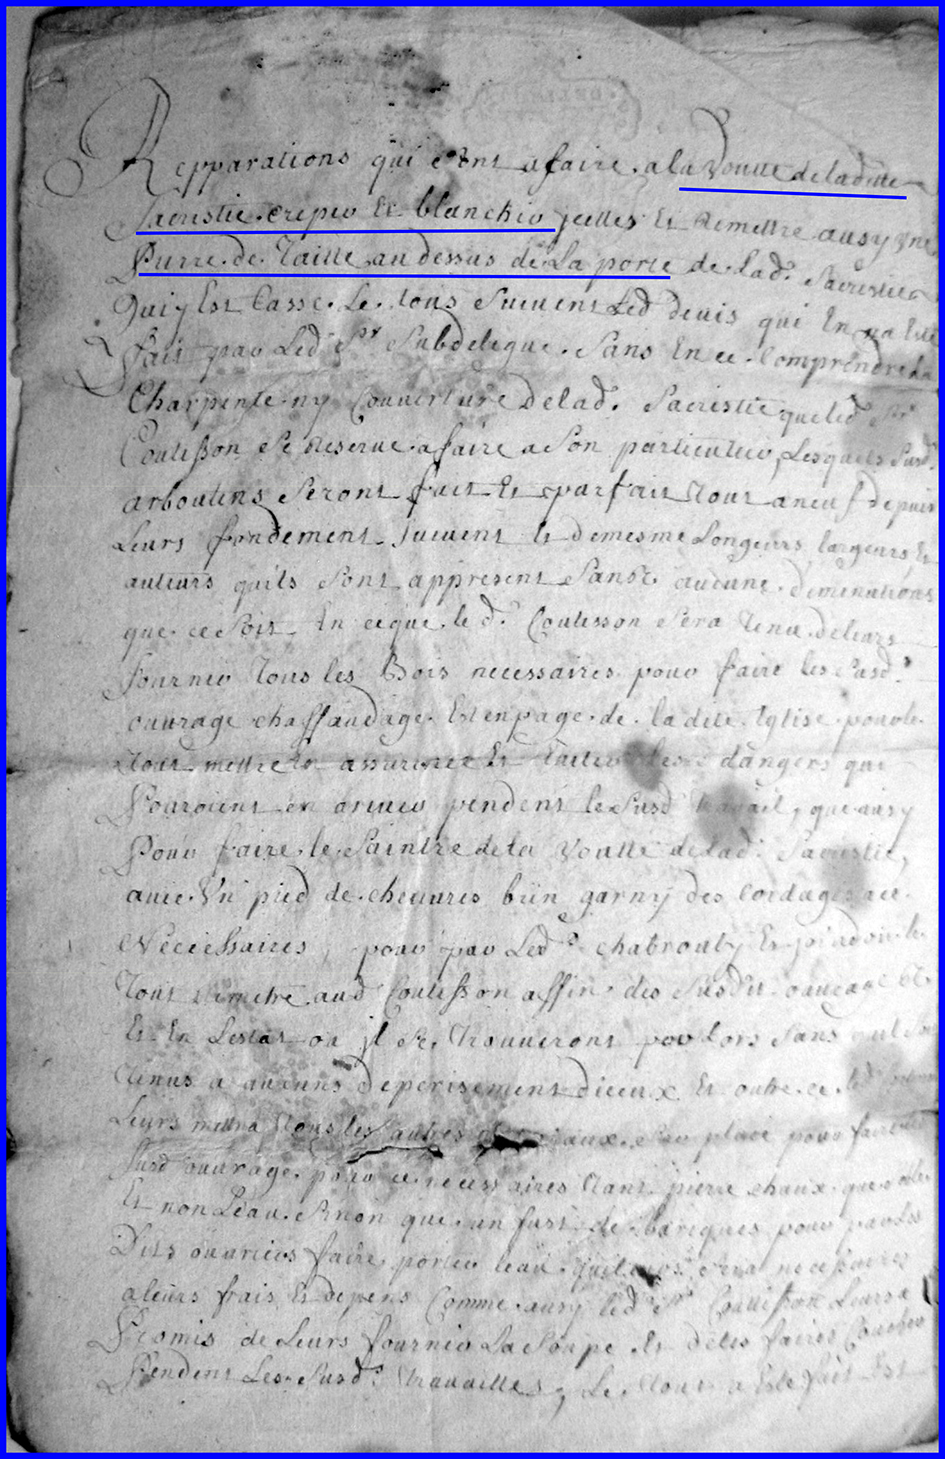 Repparations qui sont afaire. ala voutte deladitte
Sacristie. crepir Et blanchir jcelles Et Remettre ausy Vne
Pierre. de. Taille au dessus de La porte de lad.e Sacristie
Qui y Est Casse. Le. tous Suiuent Led deuis qui En na Esté
fait par Led.t S.r Subdelegue. Sans En ce. Comprendre la
Charpente ny Couuerture Delad. Sacristie que led S.r
Coutisson Se Reserue afaire a Son particullier, Lesquels Susd.
arboutins Seront fait Et parfait Tout aneuf depuis
Leurs fondement. Suiuent Et demesme Longeurs, largeurs, Et
auteurs quils Sont appresent Sans aucune. diminutions
que ce Soit. En ce que. le d.t Coutisson Sera Tenu deleurs
fournir Tous les Bois necessaires pour faire les Susd.
ouurage chaffaudage. Et enpage. de. la dite. Eglise. pour le
Tout mettre En assurance Et Euiter les dangers qui
Pouroient en ariuer pendent le Susd trauail, que ausy
Pour faire. le. Saintre de la Voutte de lad. Sacristie,
auec. Vn pied de. cheures bien garny des Cordages
Necessaires, pour par Led.t Chabrouty Et le
Tout Remetre aud Coutisson affin des Susdit ouurage
Et En Lestat ou jl Se. Trouueront pour Lors Sans
Tenus a aucuns deperisement diceux Et outre. ce.
Leurs metra Tous les autres Sur place pour faire
Susd ouurage. pour ce. necessaires Tant pierre chaux. que Sable
Et non Leau. Sinon que. un fust. de. bariques pour par Les
Dits ouuriers faire. porter leau. Sera necessaires
aleurs frais Et depens Comme. ausy led S.r Coutisson Leurs a
Promis de Leurs fournir La Soupe Et deles faires Coucher
Pendent Les. Susd. Trauailles, Le. Tout a Esté fait Est